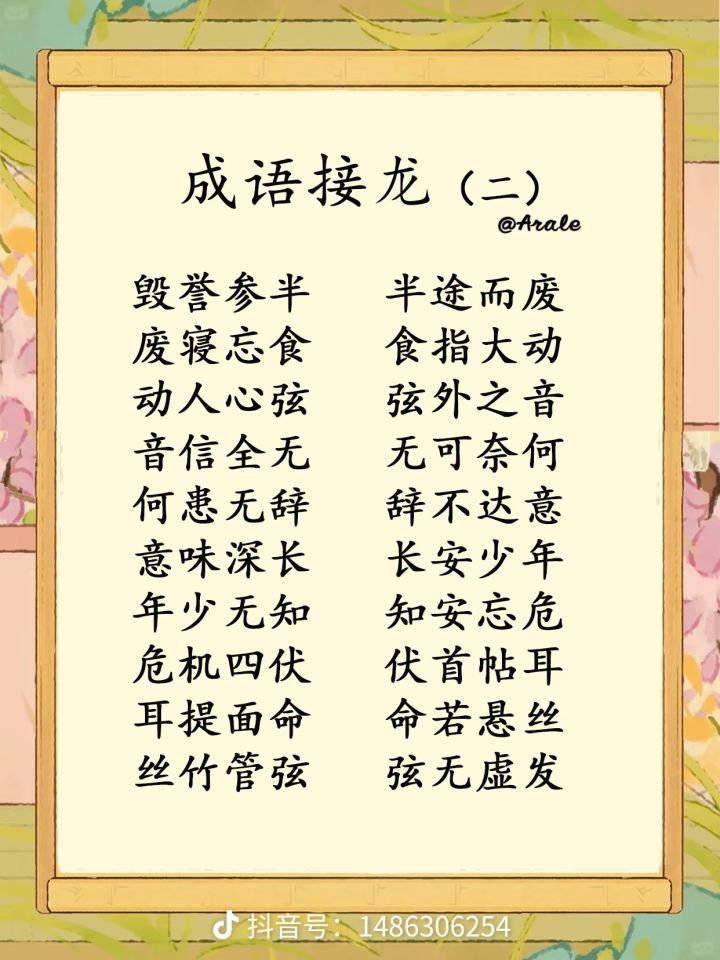 成语接龙（二）
@Arale
毁誉参半 半途而废
废寝忘食 食指大动
动人心弦 弦外之音
音信全无 无可奈何
何患无辞 辞不达意
意味深长 长安少年
年少无知 知安忘危
危机四伏 伏首帖耳
耳提面命 命若悬丝
丝竹管弦 弦无虚发
抖音号：1486306254